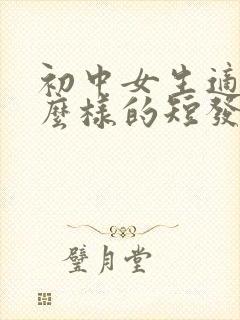 初中女生適
麼樣的短發
璧月堂